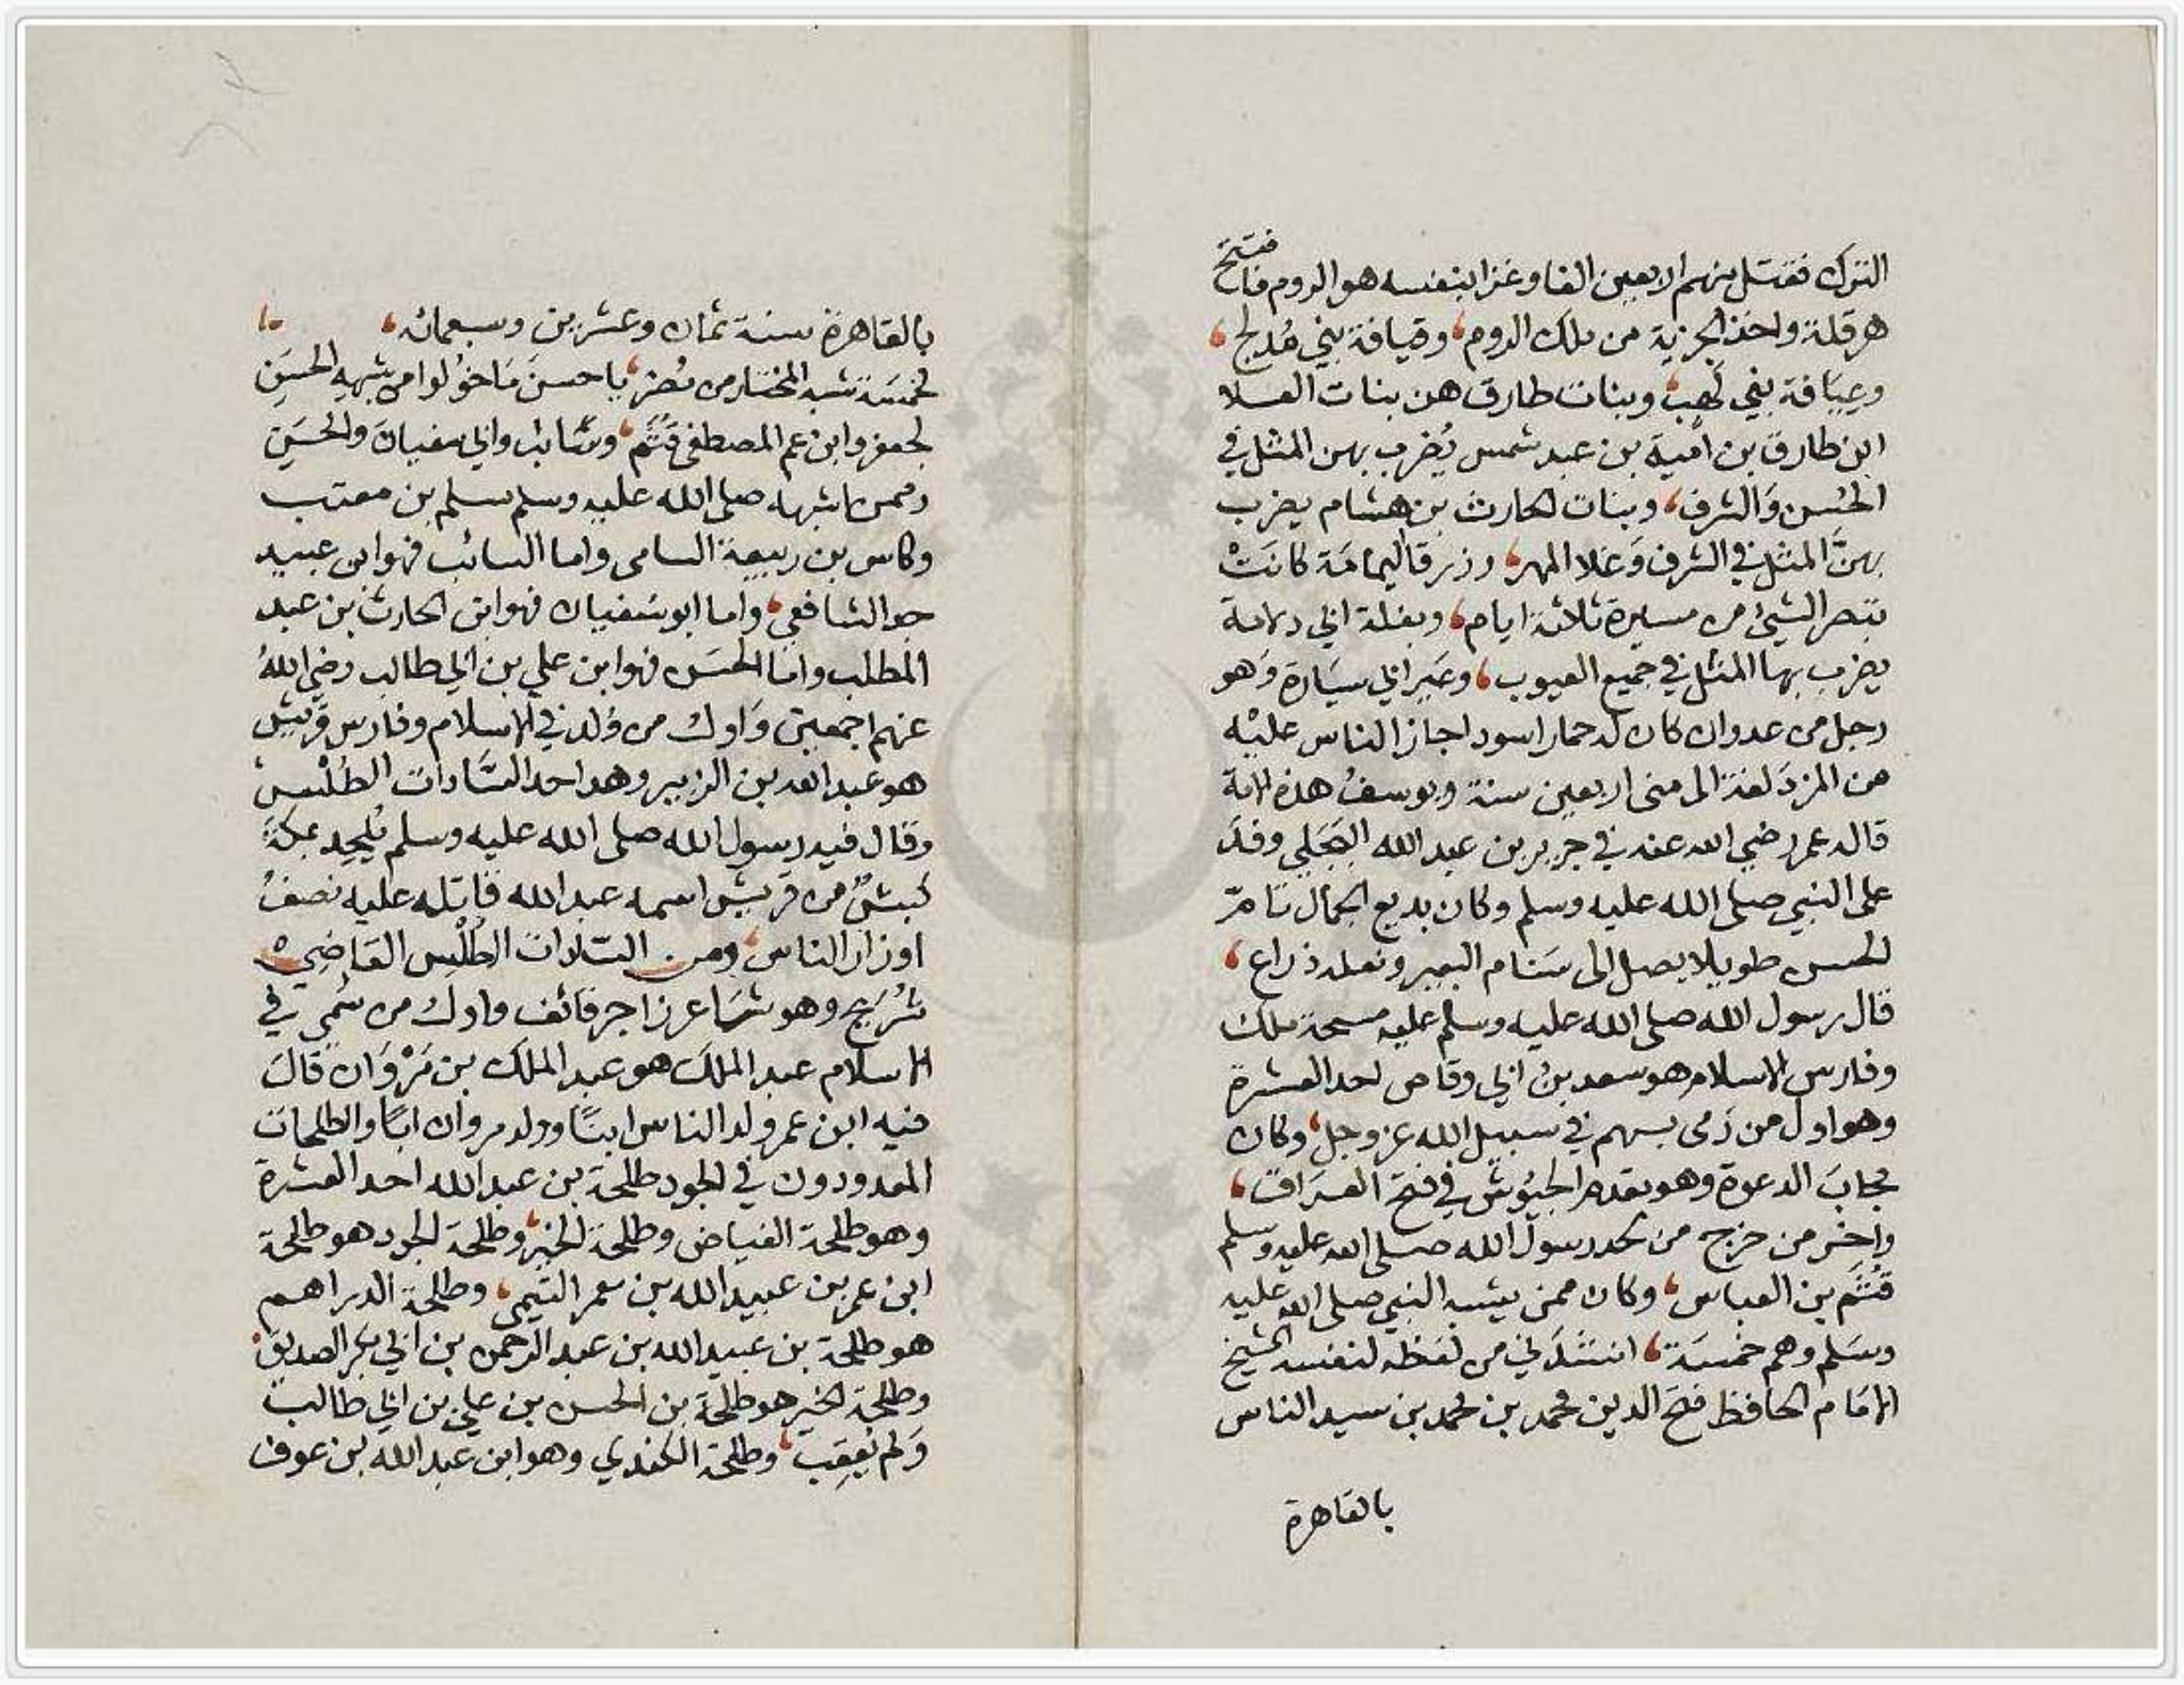 الترك فقتل منهم اربعين الفا وغزا بنفسه هو الروم فافتتح
هرقلة واخذ الجزية من ملك الروم، وقيافة بني مُدلج،
وعِيَافة بني لَهب، وبنات طارق هن بنات العلا
ابن طارق بن امية بن عبد شمس يُضرب بهن المثل في
الحُسن وَالشرف، وبنات الحارث بن هشام يضرب
بهنَّ المثل في الشرف وَغلا المهر، وزرقا اليمامَة كانَتْ
تبصر الشيئ من مسيرة ثلاثة ايام، وبغلة ابي دلامة
يضرب بها المثل في جميع العيوب، وعَير ابي سيَارة وَهو
رجل من عدوان كان له حمار اسود اجاز الناس عليْه
من المزدَلفة الى منى اربعين سنة ويوسفُ هذه الامة
قاله عمر رضي الله عنه في جرير بن عبد الله البَجَلي وفدَ
على النبي صلى الله عليه وسلم وكان بديع الجمال تامّ
الحسن طويلا يصل الى سَنام البعير ونعله ذراع،
قال رسول الله صلى الله عليه وسلم عليه مسحة ملك
وفارس الاسلام هو سعد بن ابي وقاص احد العشرة
وهو اول من رَمى بسهم في سبيل الله عز وجل، وكان
مجابَ الدعوة وهو مقدم الجيُوش في فتح العِرَاق،
واخر من خرج من لحد رسول الله صلى الله عليه وسلم
قُثَم بن العباس، وكان ممن يشبه النبي صلى الله عليه
وسَلم وهم خمسَة، انشدَني من لفظه لنفسه الشيخ
الامَام الحافظ فتح الدين محمد بن محمد بن سيد الناس
بالقاهرة
بالقاهرة سنة ثمان وعشرين وسبعمائه،
لخمسَة شبه المختار من مُضر، يا حسنَ مَا خوِّلوا من شبهه الحسَنِ
لجعفر وابن عم المصطفى قُثَم، وسَائب وابي سفيان والحسَنِ
وممن اشبهه صلى الله عليه وسلم مسلم بن معتب
وكابس بن ربيعة السامي واما السائب فهو ابن عبيد
جد الشافعي، واما ابو سُفيان فهو ابن الحارث بن عبد
المطلب واما الحسَن فهو ابن علي بن ابي طالب رضي اللهُ
عنهم اجمعين وَاول من وُلد في الاسلام وفارس قريش
هو عبد الله بن الزبير وهو احد السَّادات الطُلْس
وقال فيه رسول الله صلى الله عليه وسلم يُلحد بمكةَ
كبشٌ من قريش اسمه عبد الله قاتله عليه نصفُ
اوزار الناس، ومن السَّادات الطُلْس القَاضِي
شُرَيح وهو شَاعر زاجر قائف واول من سُمي في
الاسلام عبد الملك هو عبد الملك بن مَرْوَان قالَ
فيه ابن عمر ولد الناس ابنًا وولد مروان ابًا والطلحات
المعدودون في الجود طلحة بن عبد الله احد العشرة
وهو طلحة الفياض وطلحة الخير، وطلحة الجود هو طلحة
ابن عمر بن عبيد الله بن معمر التيمي، وطلحة الدراهم
هو طلحة بن عبيد الله بن عبد الرحمن بن ابي بكر الصديق
وطلحة الخير هو طلحة بن الحسن بن علي بن ابي طالب
وَلم يُعقِب، وطلحة الكندي وهو ابن عبد الله بن عوف